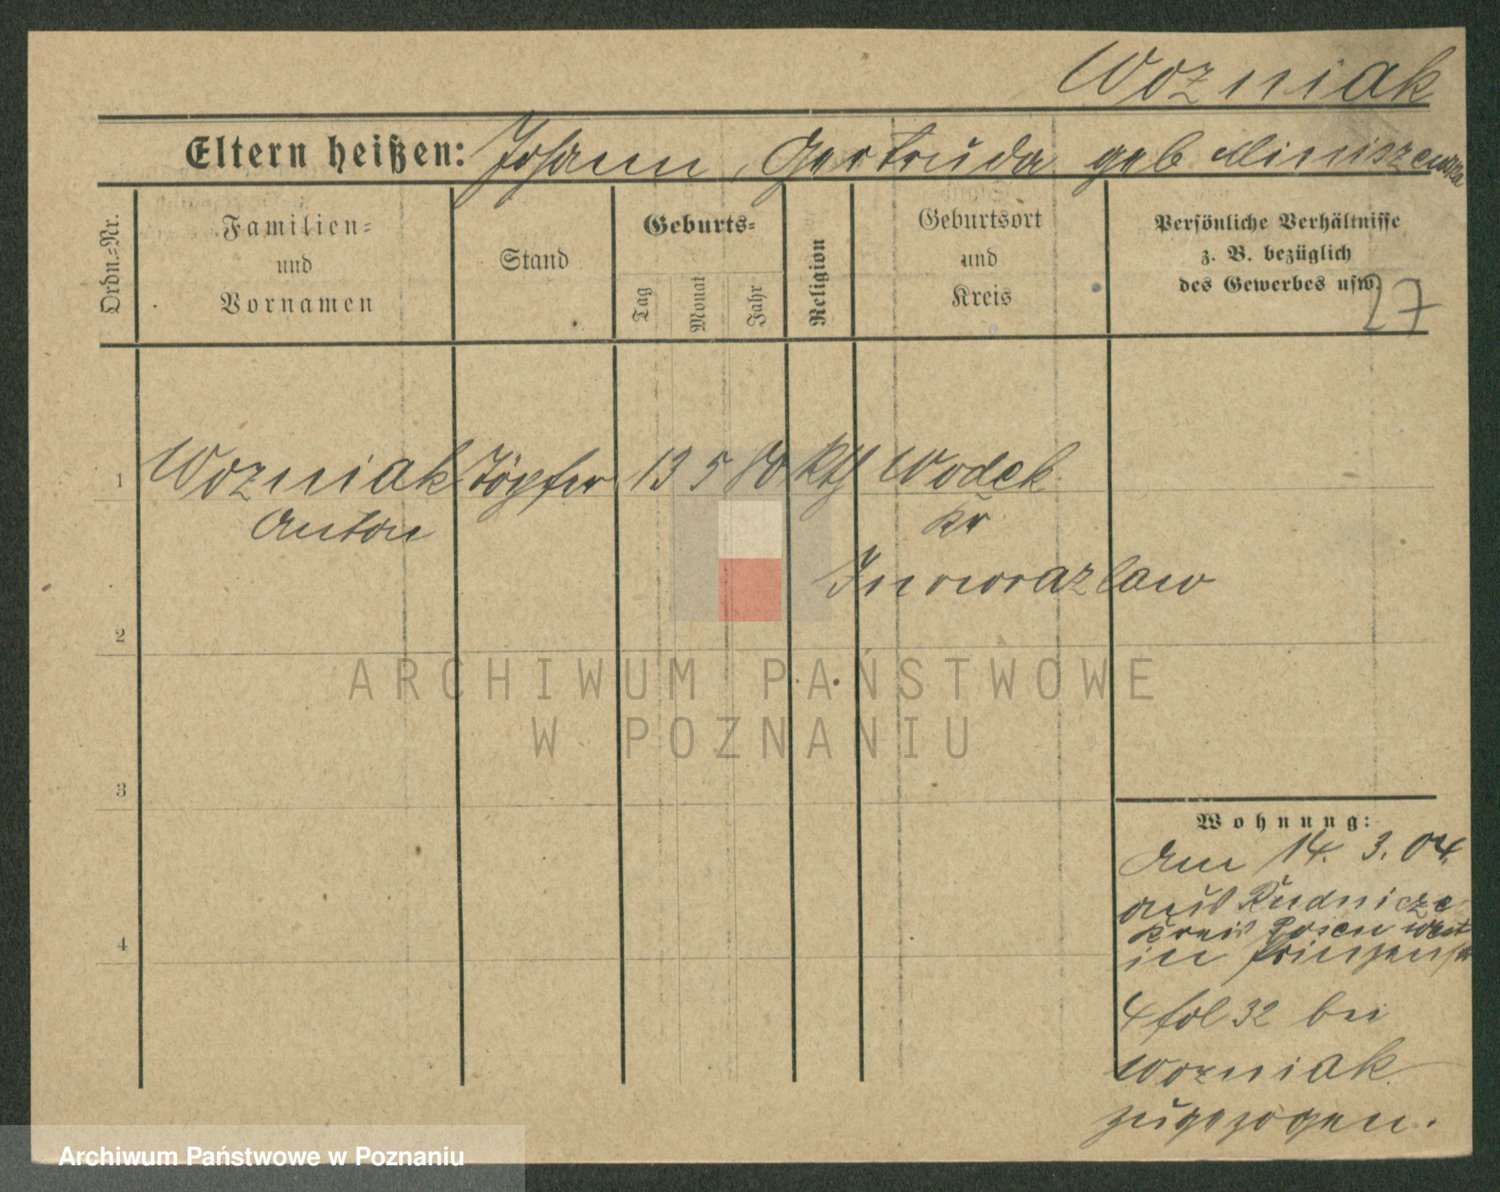 Wozniak
Eltern heißen: Johann, Gertruda geb Miniszewska
Ordn.-Nr.
Familien-
und
Vornamen
Stand
Geburts-
Tag
Monat
Jahr
Religion
Geburtsort
und
Kreis
Persönliche Verhältnisse
z. B. bezüglich
des Gewerbes usw.
27
1 Wozniak Töpfer 13 5 80 kth Wodek
Anton Kr
Inowrazlaw
2
3
4
ARCHIWUM PAŃSTWOWE
W POZNANIU
Wohnung:
Am 14. 3. 04.
aus Rudnicze
Kreis Posen West
in Prinzenstr
4 fol 32 bei
Wozniak
zugezogen.
Archiwum Państwowe w Poznaniu